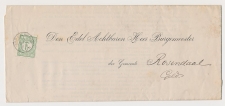 Den Edel Achtbaren Heer Burgemeester
der Gemeente Rozendaal